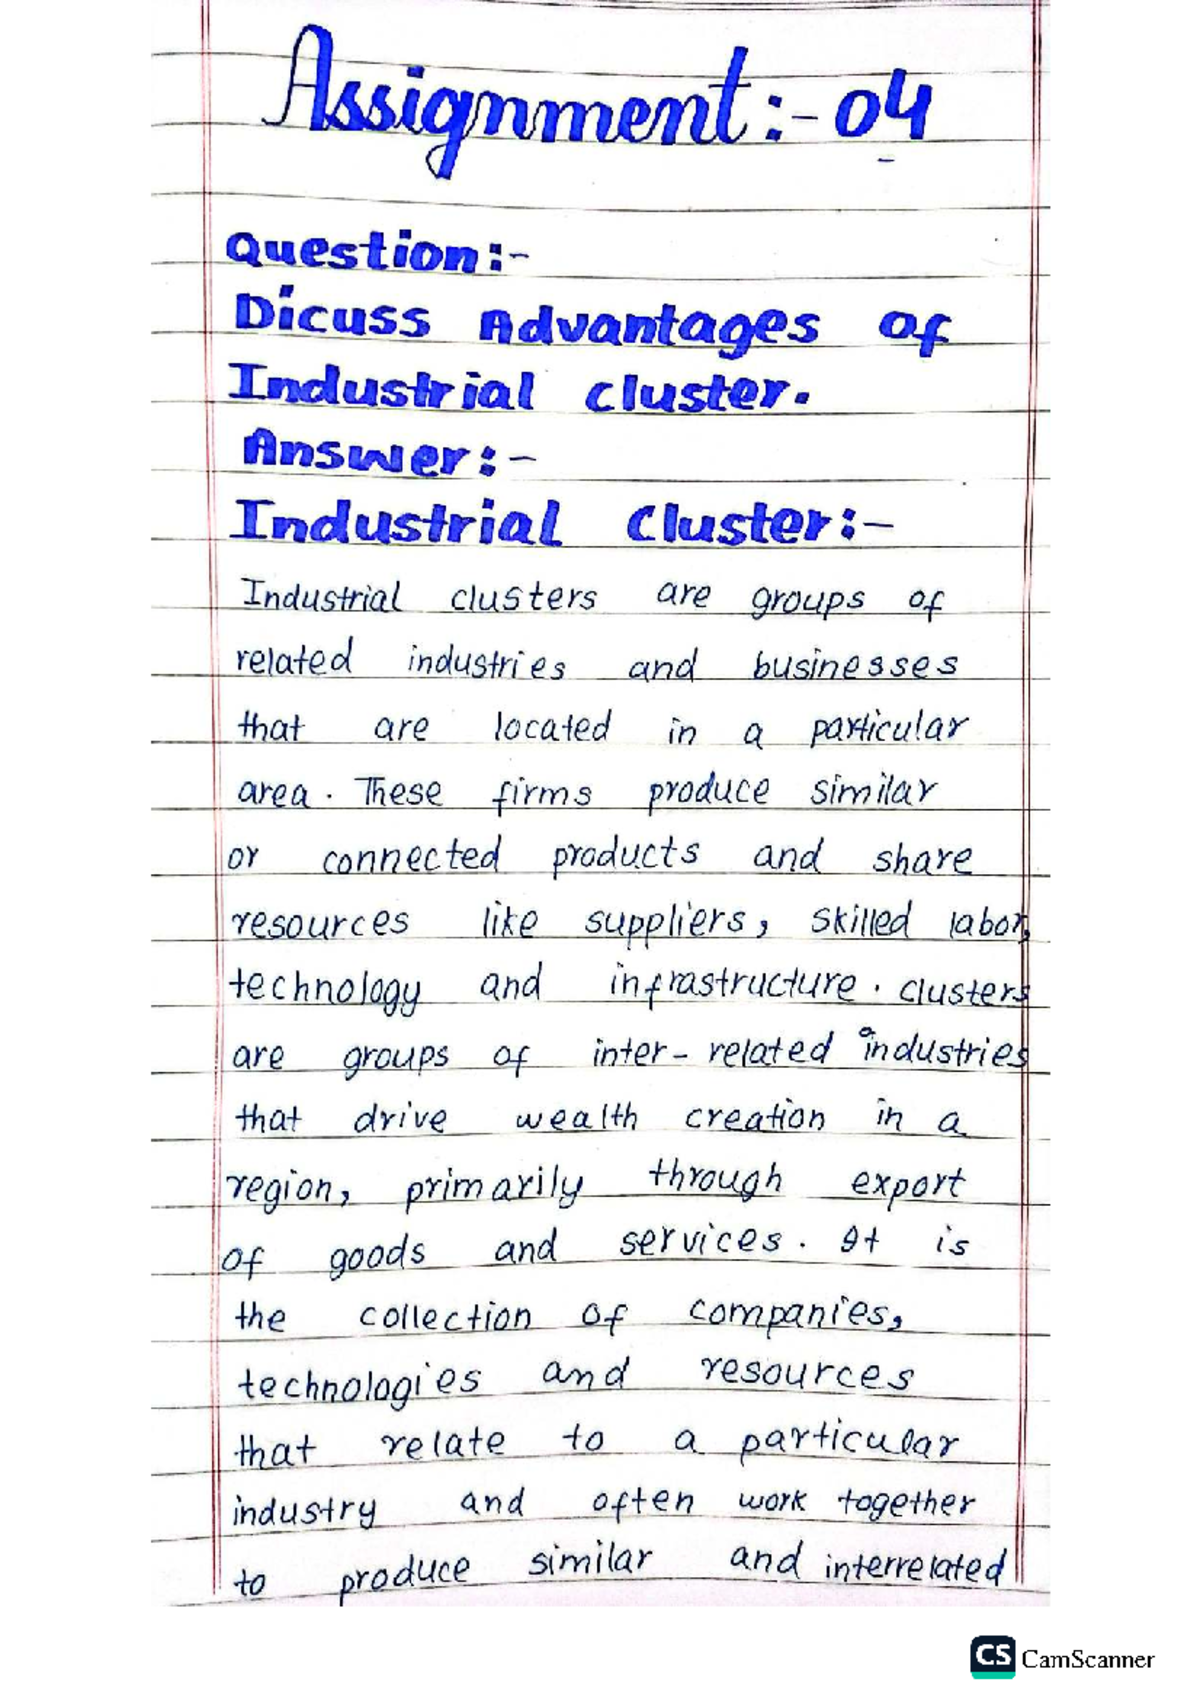 Assignment:- 04
Question:-
Dicuss Advantages of
Industrial cluster.
Answer:-
Industrial Cluster:-
Industrial clusters are groups of
related industries and businesses
that are located in a particular
area. These firms produce similar
or connected products and share
resources like suppliers, skilled labor,
technology and infrastructure. clusters
are groups of inter-related industries
that drive wealth creation in a
region, primarily through export
of goods and services. It is
the collection of companies,
technologies and resources
that relate to a particular
industry and often work together
to produce similar and interrelated
CS CamScanner